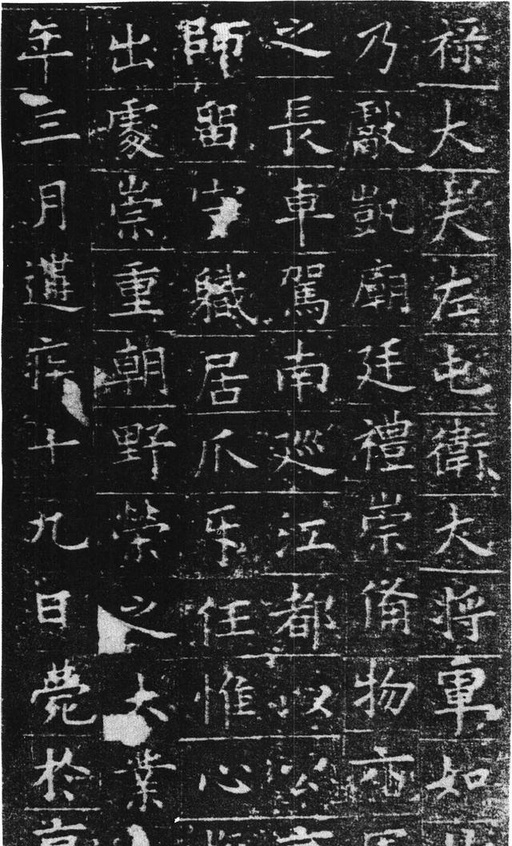 祿大夫左屯衛大将軍如
乃獻凱廟廷禮崇備物亦
之長車駕南巡江都以公京
師留守職居爪牙任惟心
出處崇重朝野榮之大業
年三月遘疾十九日薨於京